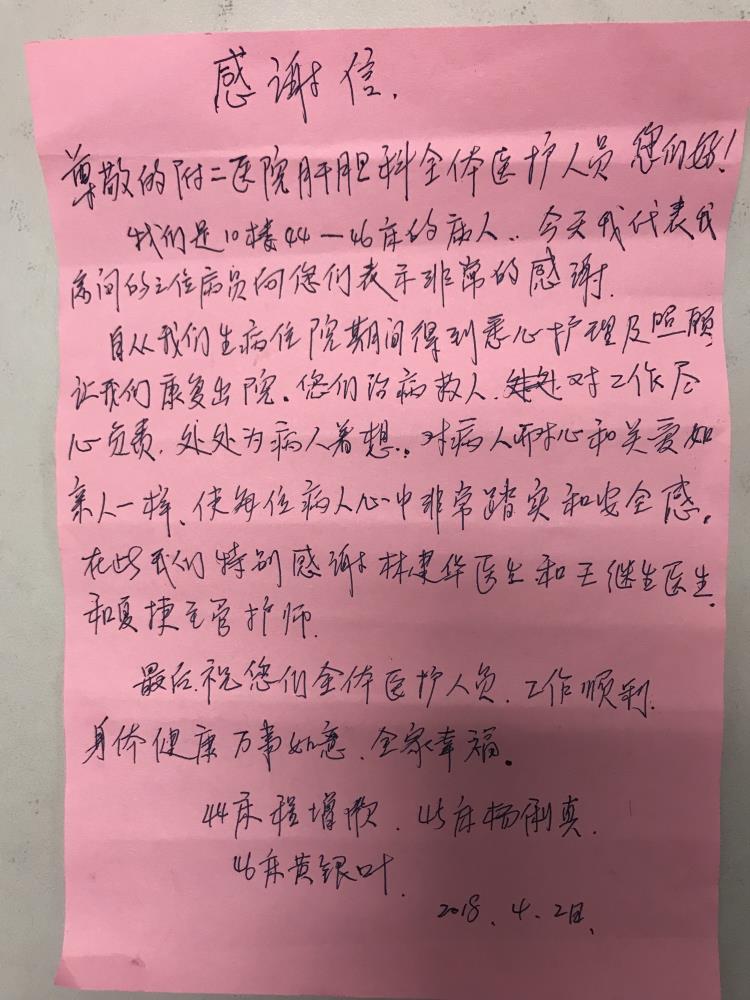 感谢信.
尊敬的附二医院肝胆科全体医护人员 您们好!
我们是10楼44—46床的病人.今天我代表我
房间的三位病员向您们表示非常的感谢.
自从我们生病住院期间得到悉心护理及照顾,
让我们康复出院。您们治病救人.对工作尽
心负责,处处为病人着想.对病人耐心和关爱如
亲人一样、使每位病人心中非常踏实和安全感。
在此我们特别感谢林建华医生和王继生医生.
和夏捷主管护师.
最后祝您们全体医护人员、工作顺利.
身体健康 万事如意、全家幸福。
44床程增 、45床杨俐真.
46床黄银叶.
2018、4、2日、